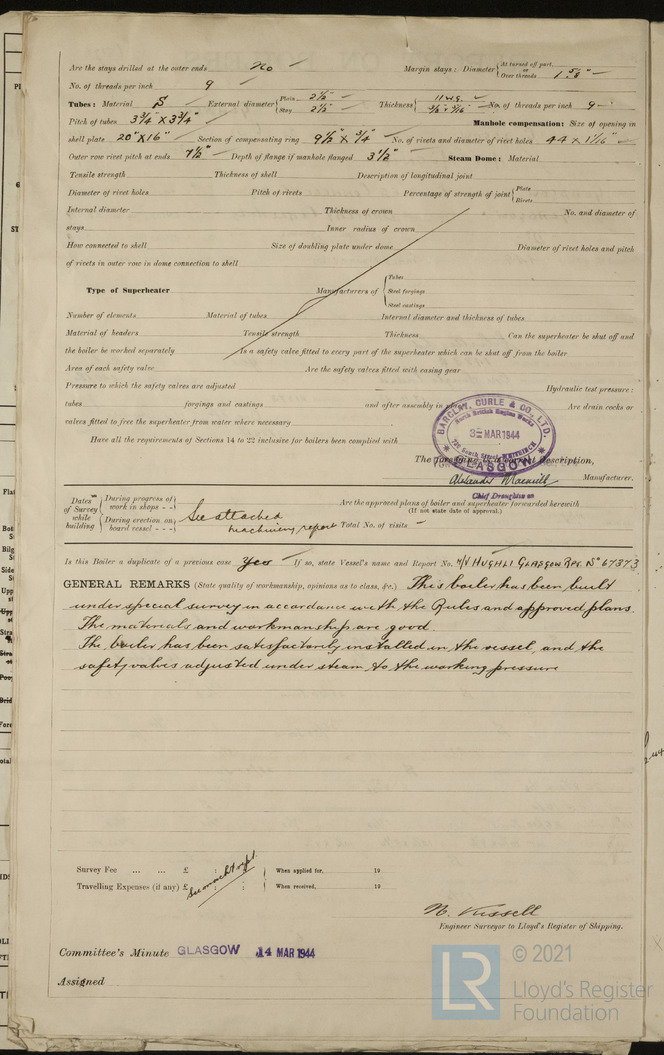 Are the stays drilled at the outer ends No Margin stays: Diameter { At turned off part, or Over threads 1 5/8"
No. of threads per inch 9
Tubes: Material S External diameter { Plain 2½" Stay 2½" Thickness { 11 W.G. No. of threads per inch 9
Pitch of tubes 3¾" X 3¾" Manhole compensation: Size of opening in
shell plate 20" X 16" Section of compensating ring 9½" X ¾" No. of rivets and diameter of rivet holes 44 X 1 1/16"
Outer row rivet pitch at ends 7½" Depth of flange if manhole flanged 3½" Steam Dome: Material
Tensile strength Thickness of shell Description of longitudinal joint
Diameter of rivet holes Pitch of rivets Percentage of strength of joint { Plate Rivets
Internal diameter Thickness of crown No. and diameter of
stays Inner radius of crown
How connected to shell Size of doubling plate under dome Diameter of rivet holes and pitch
of rivets in outer row in dome connection to shell
Type of Superheater Manufacturers of { Tubes Steel forgings Steel castings
Number of elements Material of tubes Internal diameter and thickness of tubes
Material of headers Tensile strength Thickness Can the superheater be shut off and
the boiler be worked separately Is a safety valve fitted to every part of the superheater which can be shut off from the boiler
Area of each safety valve Are the safety valves fitted with easing gear
Pressure to which the safety valves are adjusted Hydraulic test pressure:
tubes forgings and castings and after assembly in place Are drain cocks or
valves fitted to free the superheater from water where necessary
Have all the requirements of Sections 14 to 22 inclusive for boilers been complied with
BARCLAY, CURLE & CO., LTD.
North British Engine Works
3 - MAR 1944
739, South Street, WHITEINCH
GLASGOW
The foregoing is a correct description,
Alexander Macneill Manufacturer.
Chief Draughtsman
Dates of Survey while building { During progress of work in shops - - During erection on board vessel - - - See attached machinery report
Are the approved plans of boiler and superheater forwarded herewith
(If not state date of approval.)
Total No. of visits -
Is this Boiler a duplicate of a previous case Yes If so, state Vessel's name and Report No. M/V HUGHLI GLASGOW RPT. No 67373
GENERAL REMARKS (State quality of workmanship, opinions as to class, &c.) This boiler has been built
under special survey in accordance with the Rules and approved plans.
The materials and workmanship are good.
The boiler has been satisfactorily installed in the vessel, and the
safety valves adjusted under steam to the working pressure
Survey Fee ... ... £ : : { When applied for, 19
Travelling Expenses (if any) £ : : { When received, 19
N. Russell
Engineer Surveyor to Lloyd's Register of Shipping.
Committee's Minute GLASGOW 14 MAR 1944
Assigned
LR © 2021
Lloyd's Register
Foundation